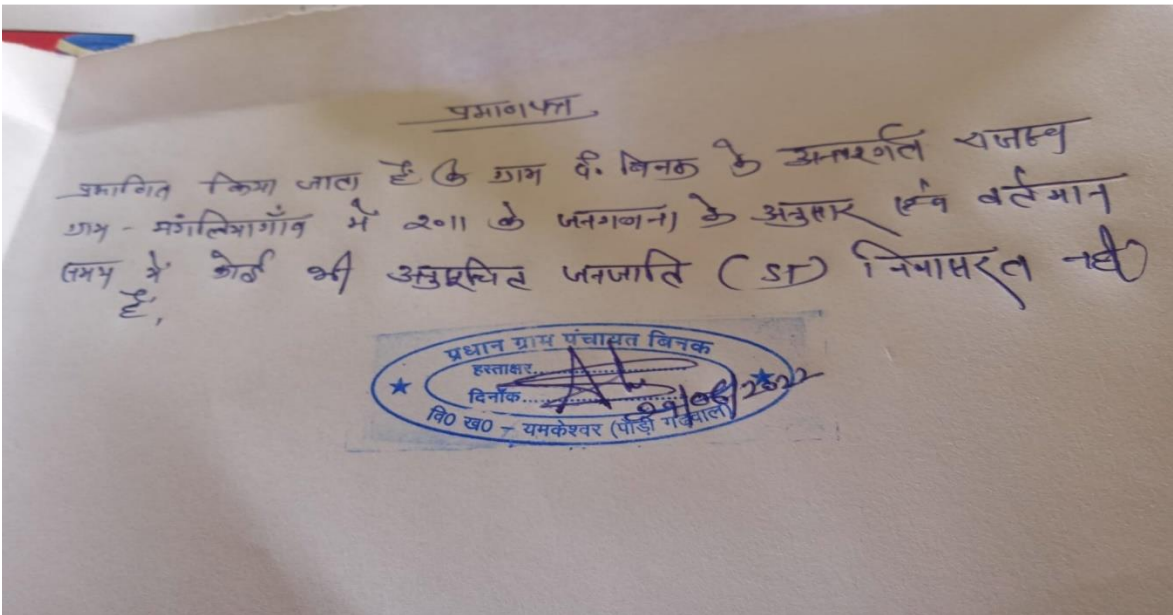 प्रमाणपत्र
प्रमाणित किया जाता है कि ग्राम पं. बिनक के अन्तर्गत राजस्व
ग्राम - मंगलियागाँव में २०११ के जनगणना के अनुसार एवं वर्तमान
समय में कोई भी अनुसूचित जनजाति (ST) निवासरत नहीं
है,
प्रधान ग्राम पंचायत बिनक
हस्ताक्षर..............................
दिनाँक..............................
वि० ख० - यमकेश्वर (पौड़ी गढ़वाल)